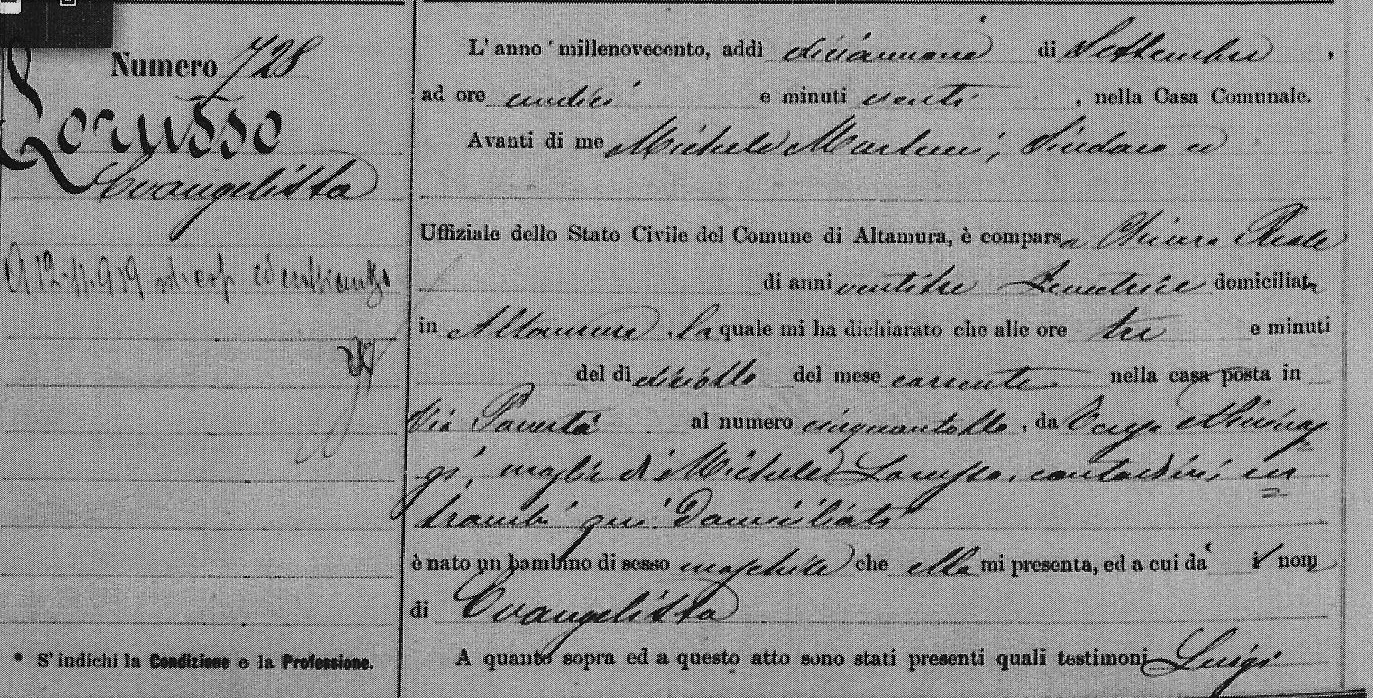 Numero 728
Lorusso
Evangelista
L'anno millenovecento, addì diciannove di Settembre,
ad ore undici e minuti venti, nella Casa Comunale.
Avanti di me Michele Martucci, Sindaco ed
Uffiziale dello Stato Civile del Comune di Altamura, è comparsa Chiara Reale
di anni ventitre Levatrice domiciliata
in Altamura, la quale mi ha dichiarato che alle ore tre e minuti
del dì diciotto del mese corrente nella casa posta in
Via Povertà al numero cinquantotto, da
moglie di Michele Lorusso, contadini, en
trambi qui domiciliati
è nato un bambino di sesso maschile che ella mi presenta, ed a cui dà il nome
di Evangelista
* S'indichi la Condizione e la Professione.
A quanto sopra ed a questo atto sono stati presenti quali testimoni Luigi